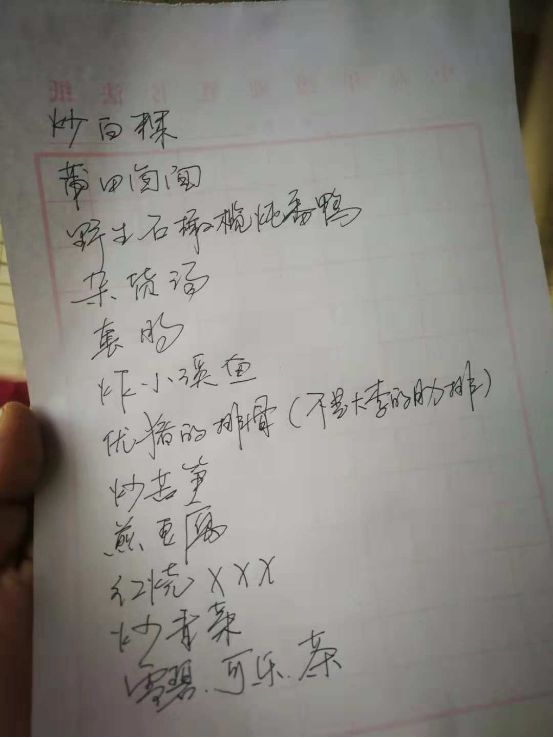 炒白粿
莆田卤面
野生石橄榄炖番鸭
杂 汤
肠
炸小溪鱼
优猪的排骨（不是大李的肋排）
炒苦笋
煎豆腐
红烧XXX
炒青菜
雪碧、可乐、茶